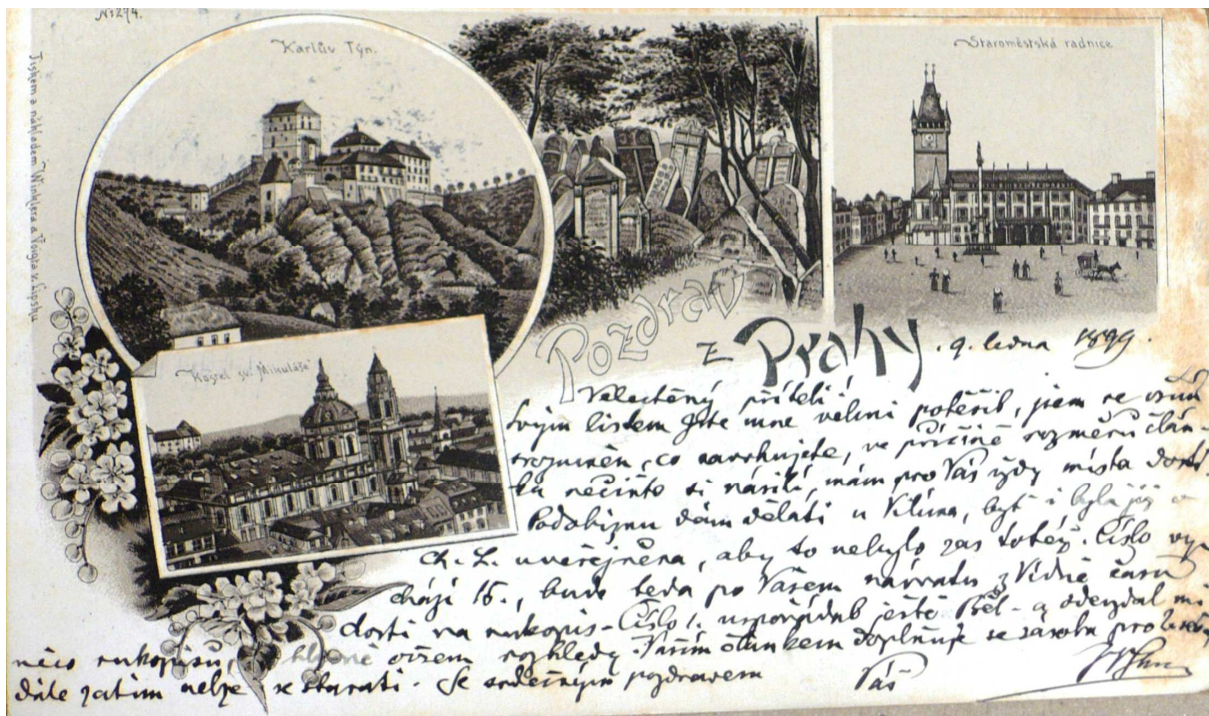 No 274.
Karlův Týn.
Staroměstská radnice
Tiskem a nákladem Winklera a Voigta v Lipsku
Kostel sv. Mikuláše
Pozdrav
z Prahy. 9. ledna 1899.
Velectěný příteli!
Svým listem jste mne velmi potěšil, jsem se vším
srozuměn, co navrhujete, ve příčině rozměru člán-
ku nečiňte si násilí, mám pro Vás vždy místa dosti.
Podobiznu dám dělati u Vilíma, byť i byla již v
Ch. L. uveřejněna, aby to nebylo zas totéž. Číslo vy-
chází 15., bude teda po Vašem návratu z Vídně času
dosti na rukopis - Číslo 1. uzpořádal ještě - a odevzdal mi
něco rukopisů, hlavně ovšem rozhledy. Vaším článkem doplňuje se zásoba pro
dále zatím nelze se starati. Se srdečným pozdravem
Váš